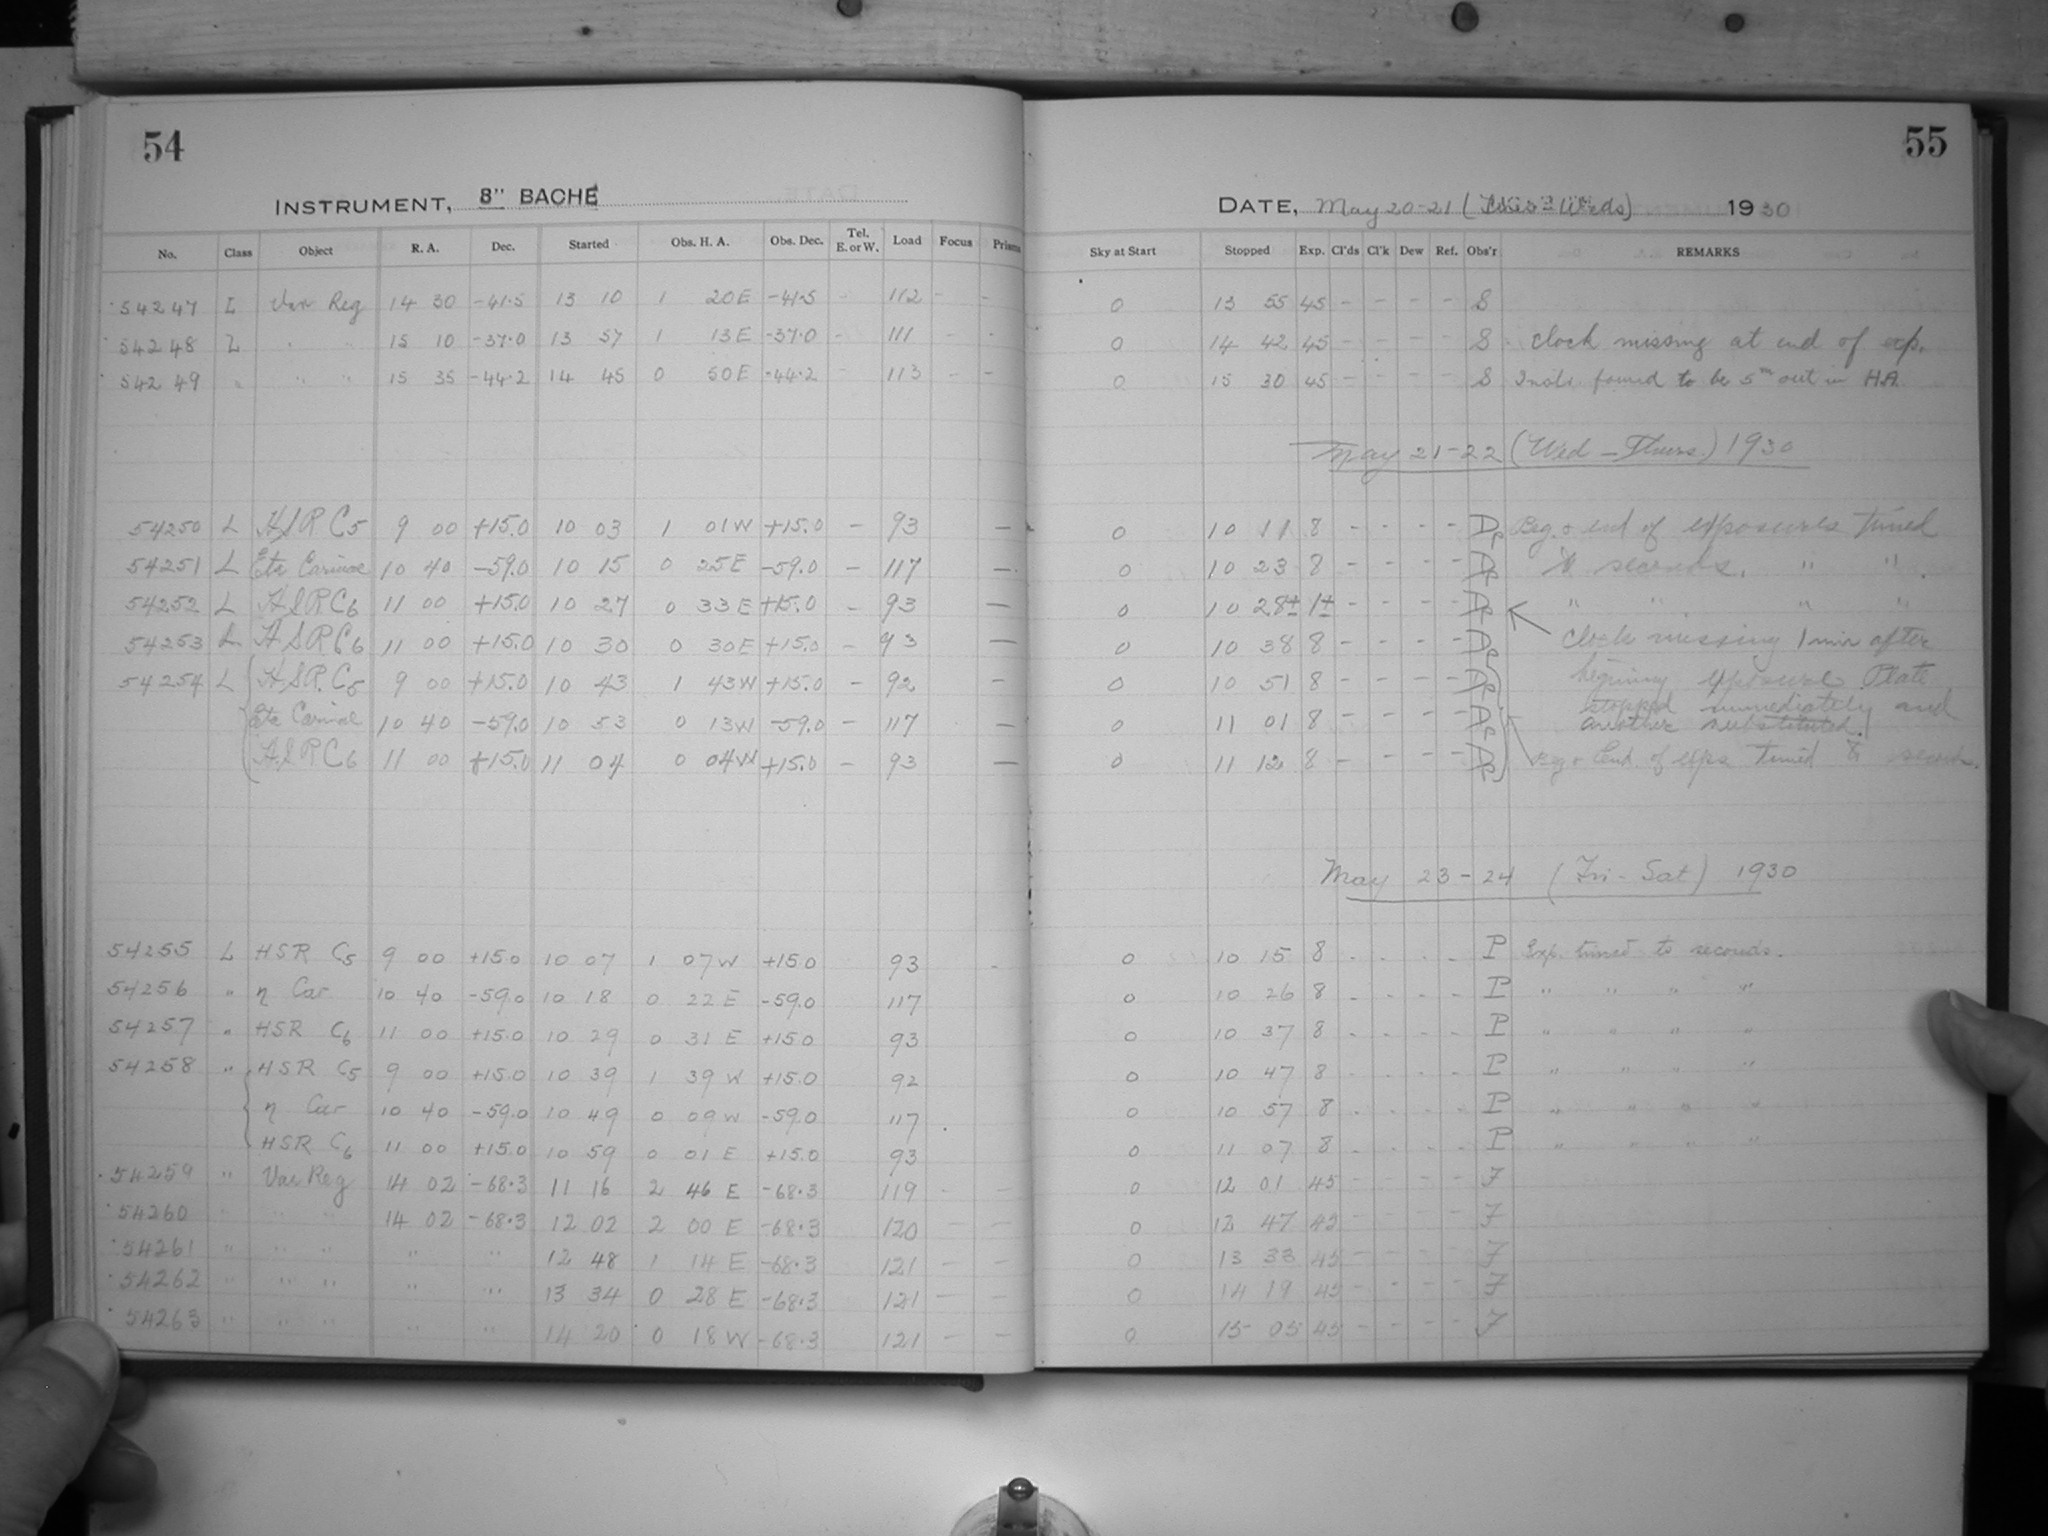 54
INSTRUMENT, 8" BACHE
No. Class Object R. A. Dec. Started Obs. H. A. Obs. Dec. Tel. E. or W. Load Focus Prisms
54247 L Var Reg 14 30 -41.5 13 10 1 20E -41.5 112 - -
54248 L " " 15 10 -37.0 13 57 1 13E -37.0 - 111 - -
54249 " " " 15 35 -44.2 14 45 0 50E -44.2 - 113 - -
54250 L HSR C5 9 00 +15.0 10 03 1 01W +15.0 - 93 -
54251 L Eta Carinae 10 40 -59.0 10 15 0 25E -59.0 - 117 -
54252 L HSR C6 11 00 +15.0 10 27 0 33E +15.0 - 93 -
54253 L HSR C6 11 00 +15.0 10 30 0 30E +15.0 - 93 -
54254 L HSR C5 9 00 +15.0 10 43 1 43W +15.0 - 92 -
Eta Carinae 10 40 -59.0 10 53 0 13W -59.0 - 117 -
HSR C6 11 00 +15.0 11 04 0 04W +15.0 - 93 -
54255 L HSR C5 9 00 +15.0 10 07 1 07W +15.0 93 -
54256 " η Car 10 40 -59.0 10 18 0 22E -59.0 117
54257 " HSR C6 11 00 +15.0 10 29 0 31E +15.0 93
54258 " HSR C5 9 00 +15.0 10 39 1 39W +15.0 92
η Car 10 40 -59.0 10 49 0 09W -59.0 117
HSR C6 11 00 +15.0 10 59 0 01E +15.0 93
54259 " Var Reg 14 02 -68.3 11 16 2 46E -68.3 119 - -
54260 " " " 14 02 -68.3 12 02 2 00E -68.3 120 - -
54261 " " " " " 12 48 1 14E -68.3 121 - -
54262 " " " " " 13 34 0 28E -68.3 121 - -
54263 " " " " " 14 20 0 18W -68.3 121 - -
55
DATE, May 20-21 (Tues-Weds) 1930
Sky at Start Stopped Exp. Cl'ds Cl'k Dew Ref. Obs'r REMARKS
0 13 55 45 - - - - S
0 14 42 45 - - - - S clock missing at end of exp.
0 15 30 45 - - - - S found to be 5m out in HA
May 21-22 (Wed-Thurs.) 1930
0 10 11 8 - - - - Dp Beg. & end of exposures timed
0 10 23 8 - - - - Dp to seconds. " "
0 10 28± 1± - - - - Dp " " " "
0 10 38 8 - - - - Dp clock missing 1 min after
0 10 51 8 - - - - Dp beginning exposure Plate
stopped immediately and
0 11 01 8 - - - - Dp another substituted.
0 11 12 8 - - - - Dp Beg & End of exps timed to seconds.
May 23-24 (Fri-Sat) 1930
0 10 15 8 - - - - P Exp. timed to seconds.
0 10 26 8 - - - - P " " " "
0 10 37 8 - - - - P " " " "
0 10 47 8 - - - - P " " " "
0 10 57 8 - - - - P " " " "
0 11 07 8 - - - - P " " " "
0 12 01 45 - - - - F
0 12 47 45 - - - - F
0 13 33 45 - - - - F
0 14 19 45 - - - - F
0 15 05 45 - - - - F